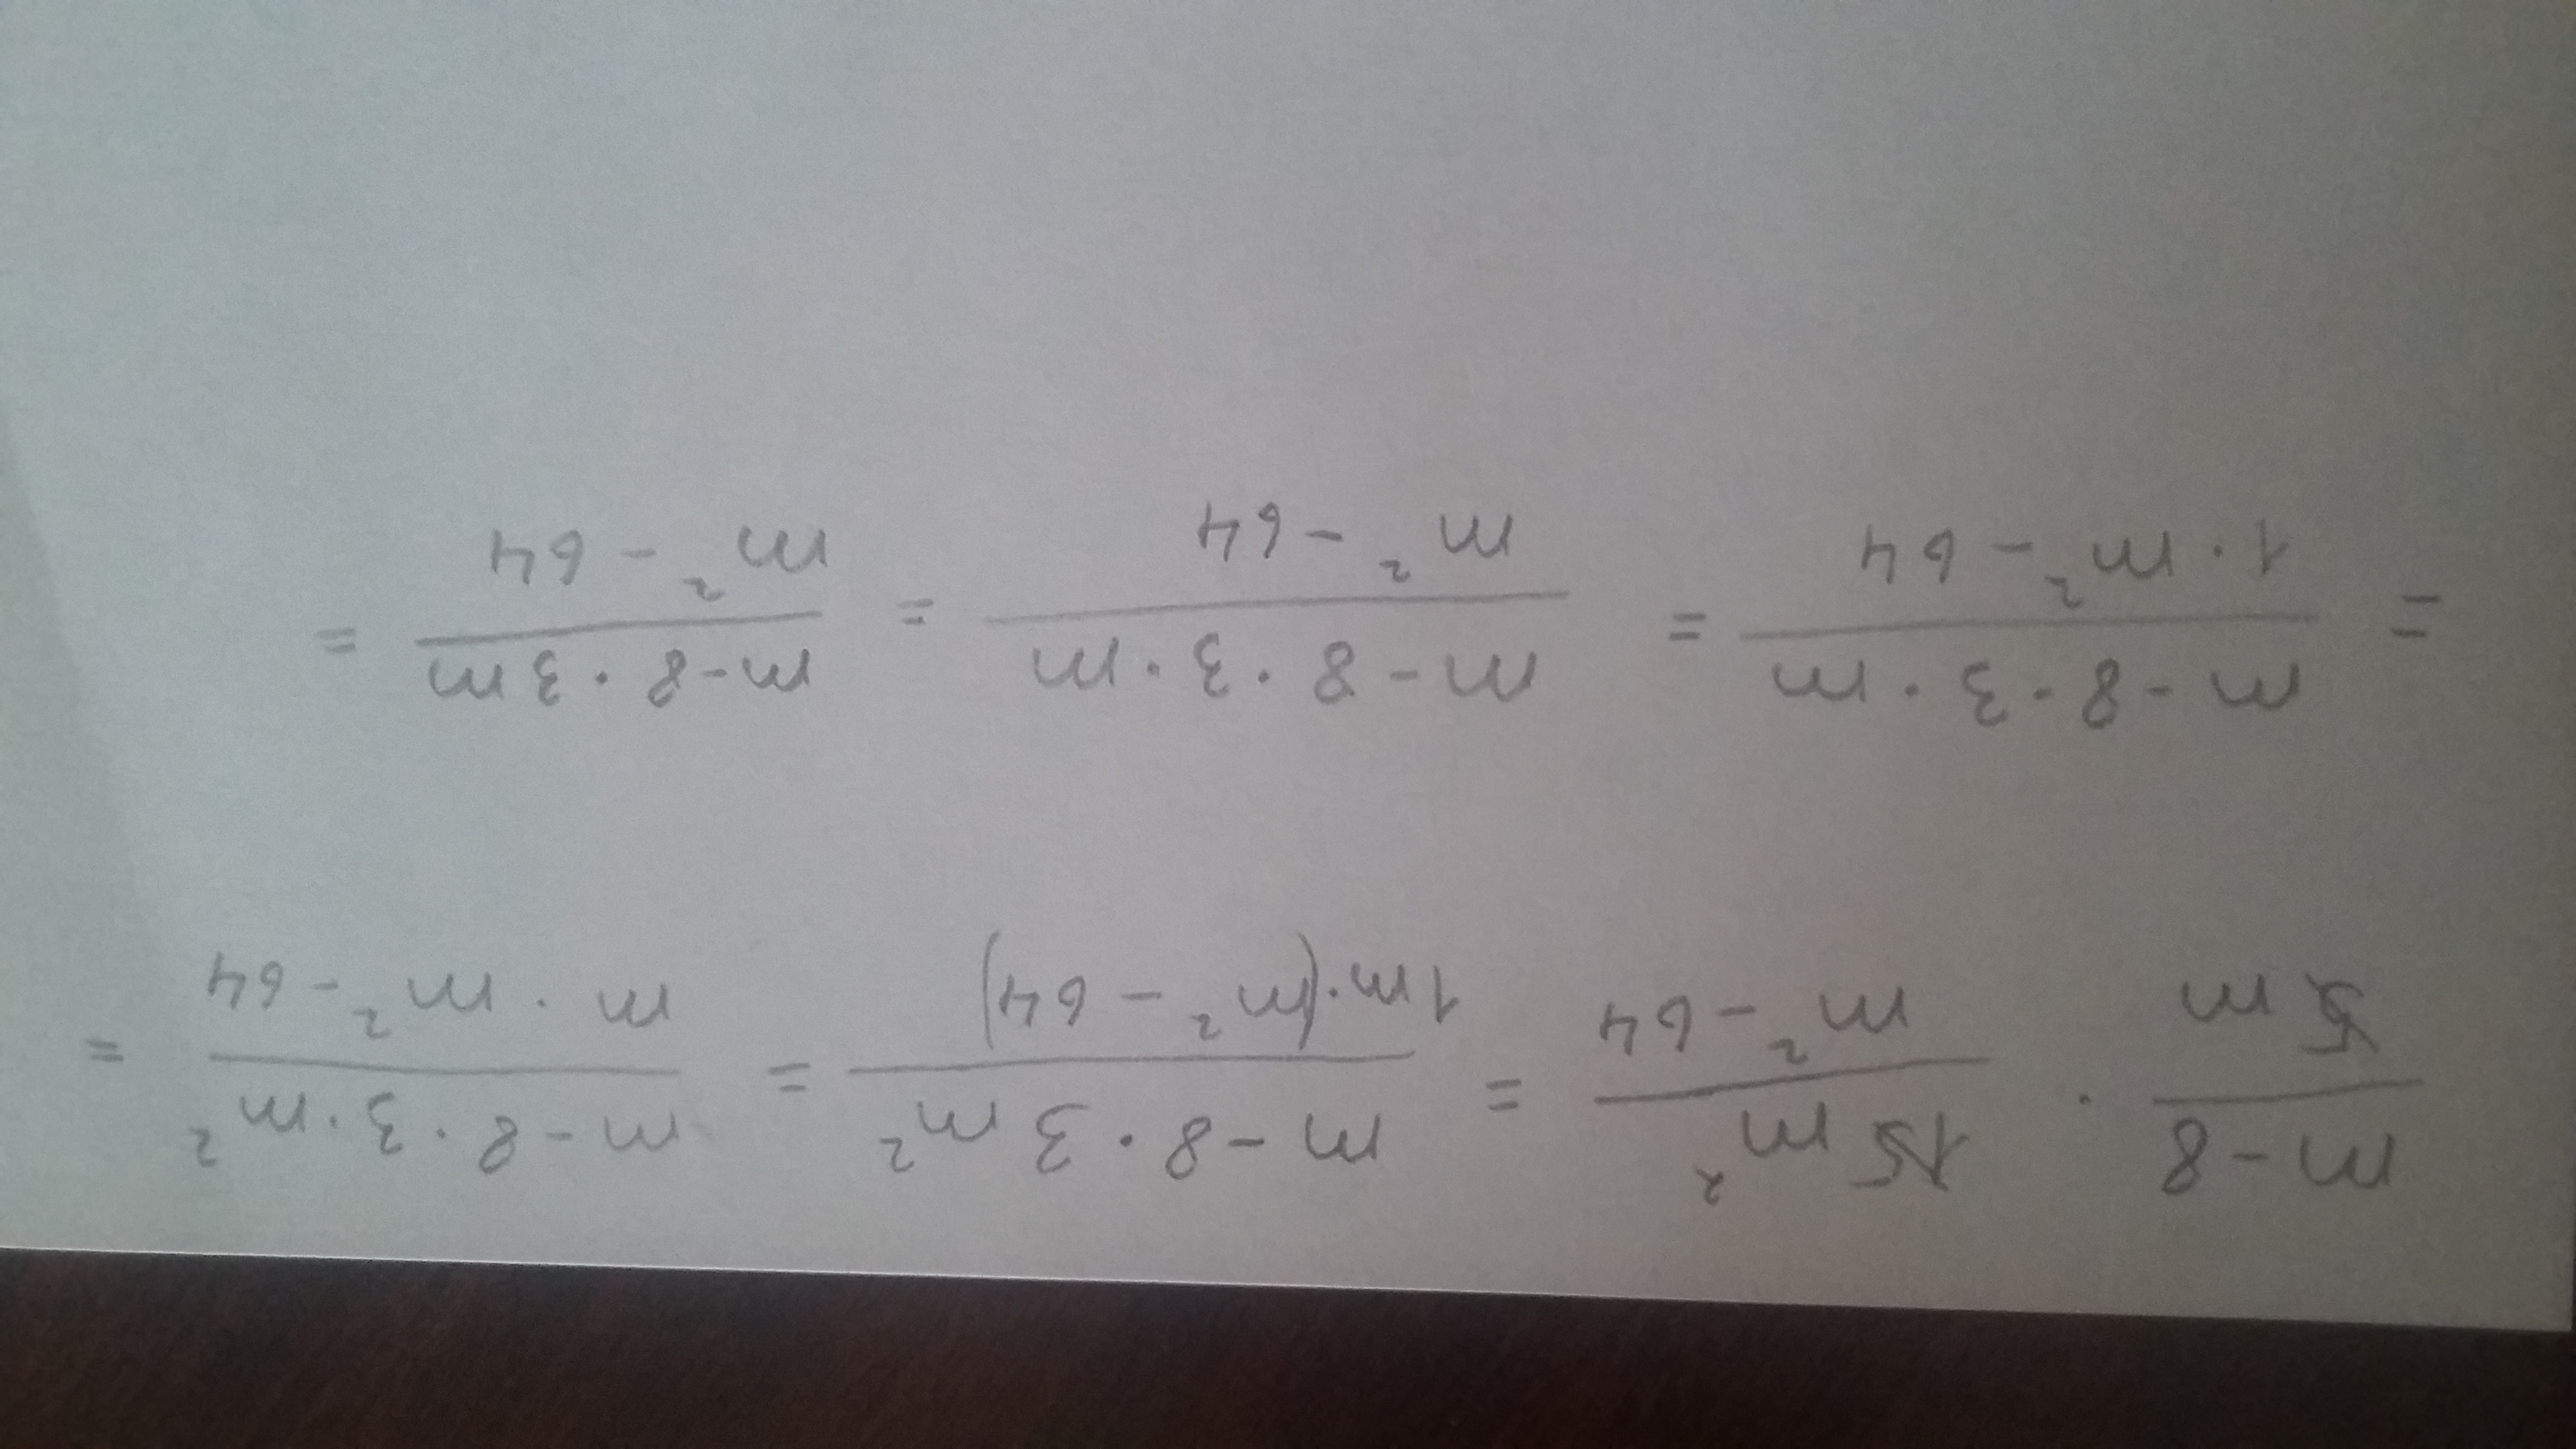 (m-8)/(5m) · (15m²)/(m²-64) = (m-8·3m²)/(1m·(m²-64)) = (m-8·3·m²)/(m·m²-64) =
= (m-8·3·m)/(1·m²-64) = (m-8·3·m)/(m²-64) = (m-8·3m)/(m²-64) =